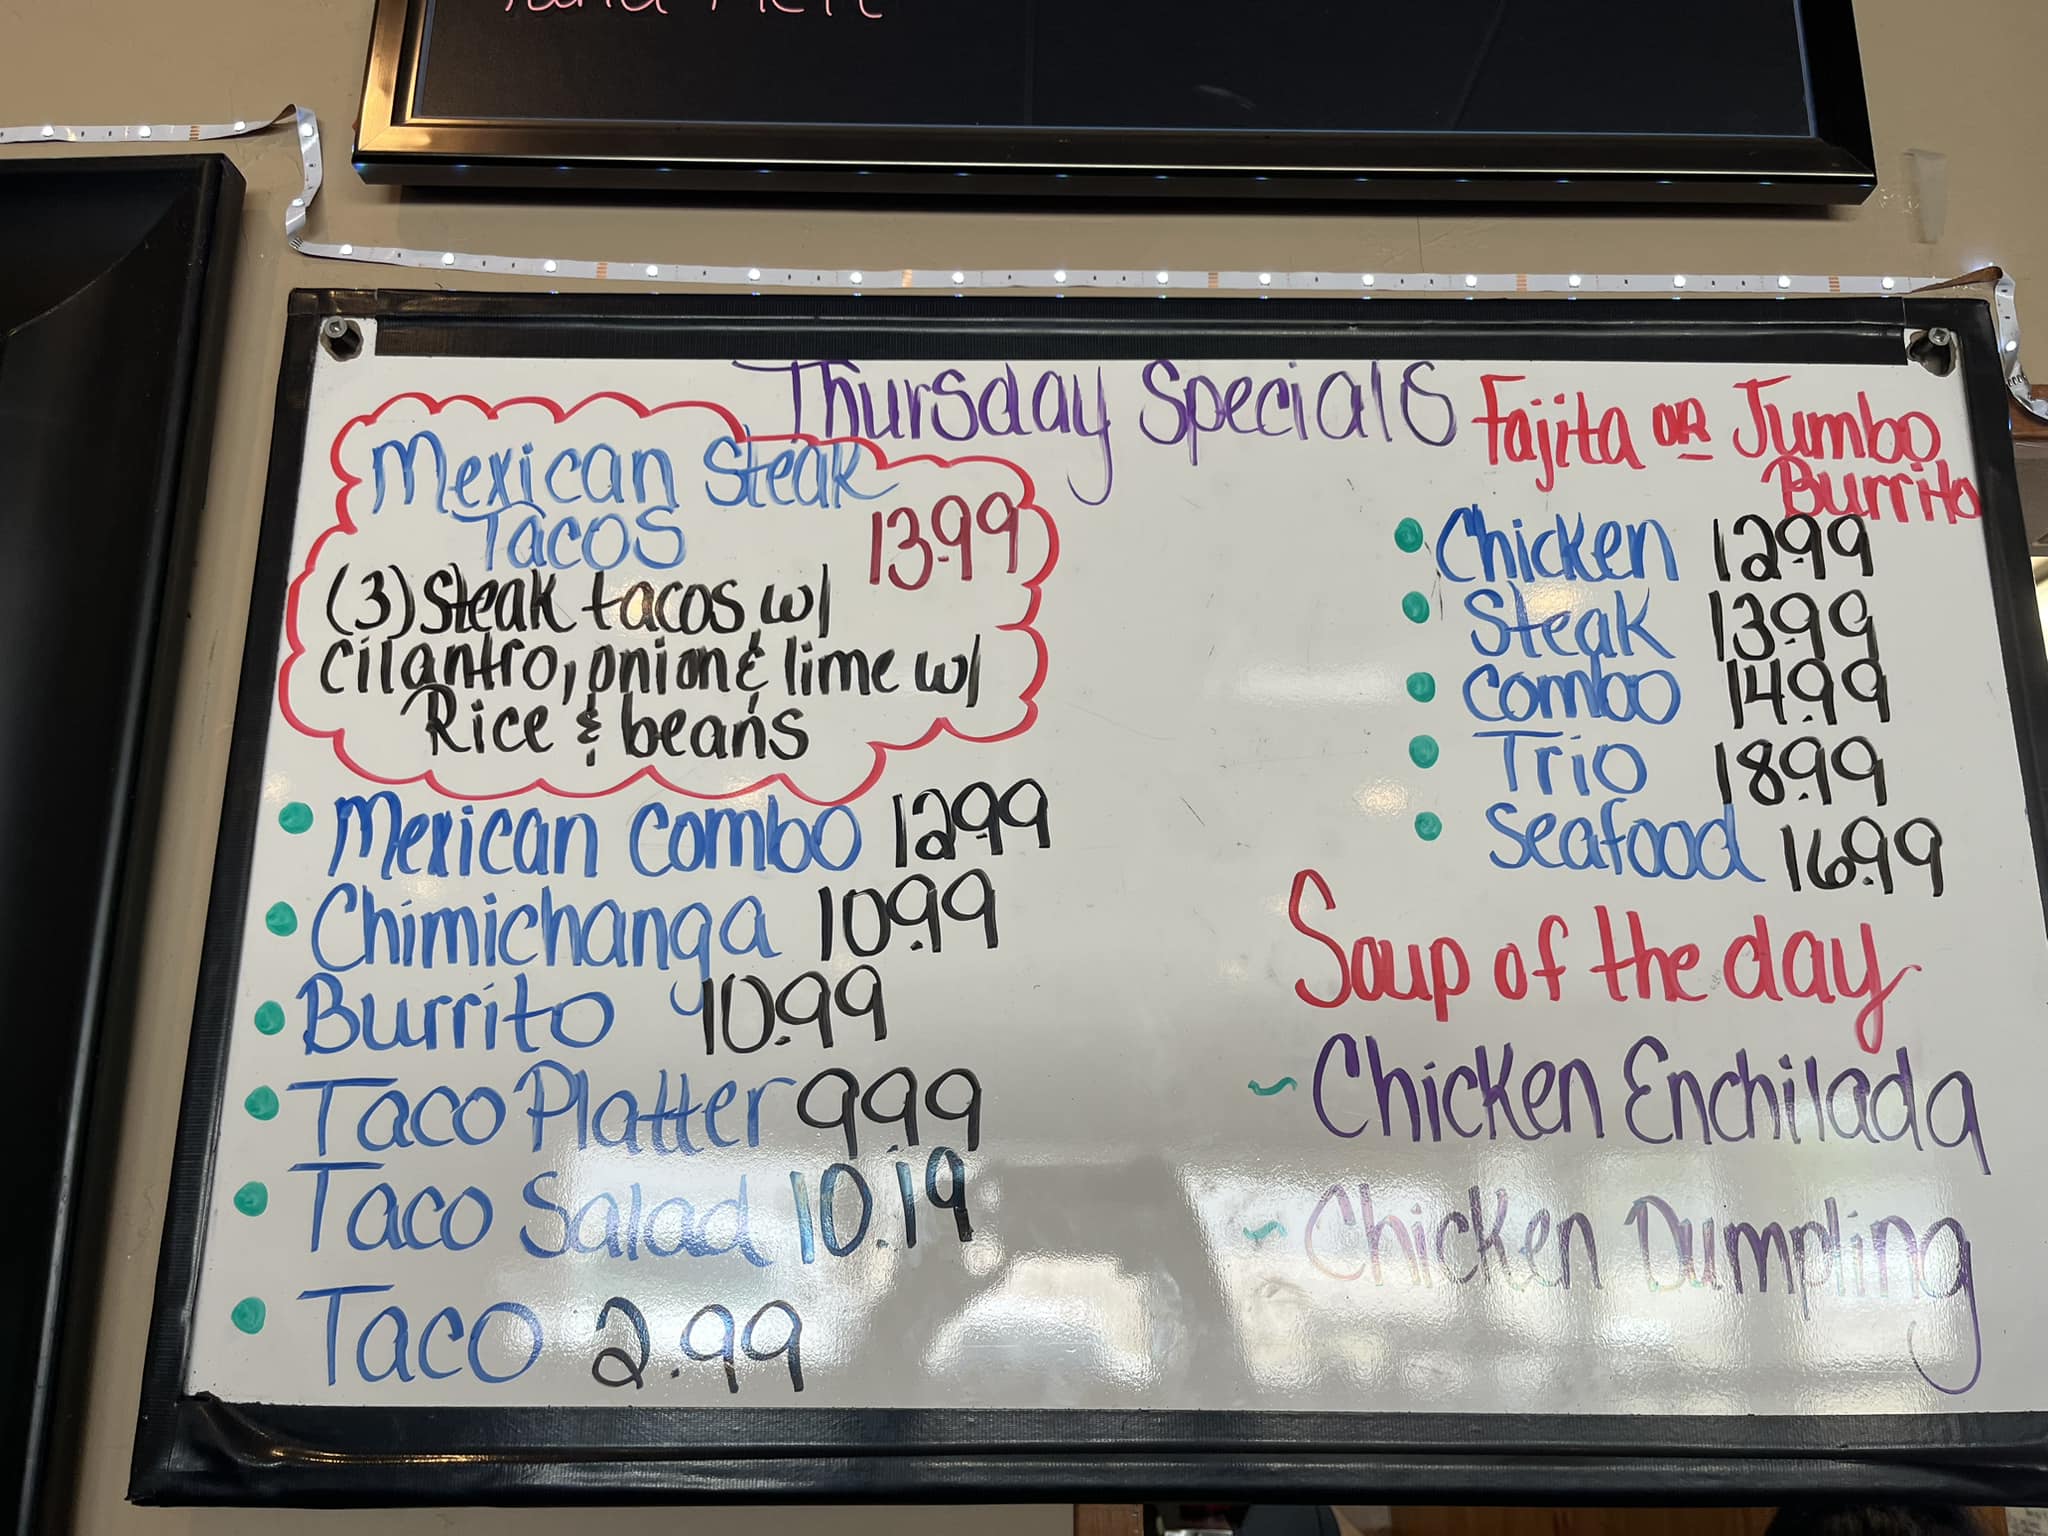 Thursday Specials
Mexican Steak
Tacos 13.99
(3) Steak tacos w/
cilantro, onion & lime w/
Rice & beans
Mexican Combo 12.99
Chimichanga 10.99
Burrito 10.99
Taco Platter 9.99
Taco Salad 10.19
Taco 2.99
Fajita OR Jumbo
Burrito
Chicken 12.99
Steak 13.99
Combo 14.99
Trio 18.99
Seafood 16.99
Soup of the day
~ Chicken Enchilada
~ Chicken Dumpling